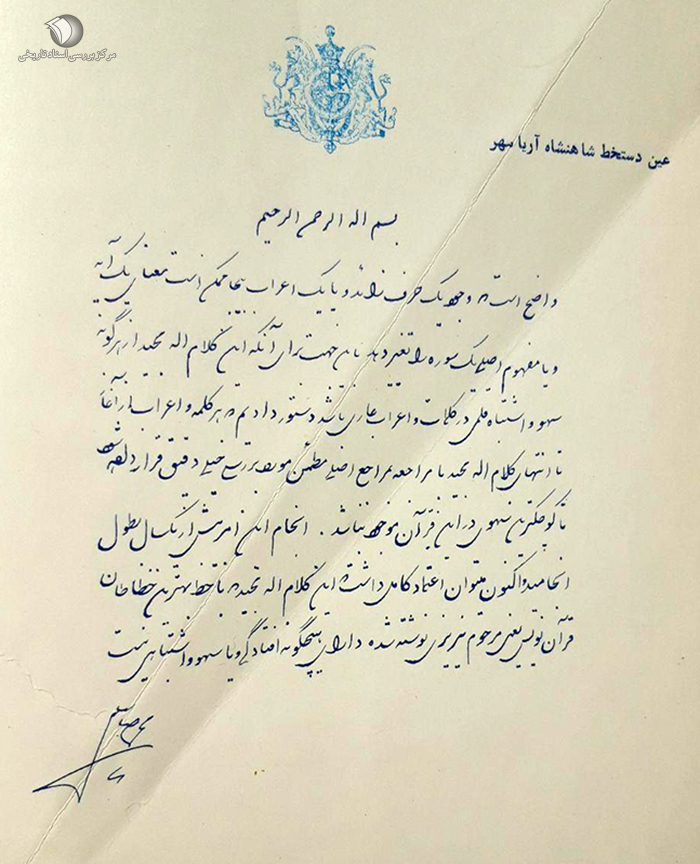 مرکز بررسی اسناد تاریخی
عین دستخط شاهنشاه آریامهر
بسم اله الرحمن الرحیم
واضح است که وجود یک حرف زائد و یا یک اعراب بیجا ممکن است معنای یک آیه
و یا مفهوم اصلی یک سوره را تغییر دهد باین جهت برای آنکه این کلام اله مجید از هرگونه
سهو و اشتباه قلمی در کلمات و اعراب عاری باشد دستور دادیم که هر کلمه و اعراب از آغاز
تا انتهای کلام اله مجید با مراجعه بمراجع اصلی مطمئن مورد بررسی خیلی دقیق قرار داده شود
تا کوچکترین سهوی در این قرآن موجود نباشد . انجام این امر بیش از یکسال بطول
انجامید و اکنون میتوان اعتماد کامل داشت که این کلام اله مجید که با خط بهترین خطاطان
قرآن نویس یعنی مرحوم نیریزی نوشته شده دارای هیچگونه افتادگی و یا سهو و اشتباهی نیست